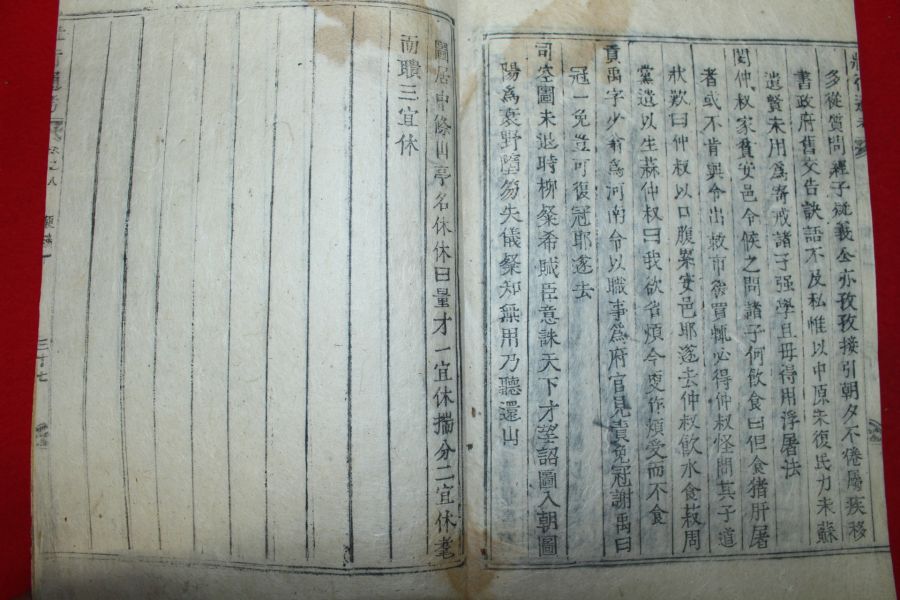 多從質問經子從義公亦孜孜接引朝夕不倦屬疾移
書政府舊交告訣語不及私惟以中原未復民力未蘇
遺賢未用爲寄戒諸子强學且毋得用浮屠法
閔仲叔家貧安邑令候之問諸子何飮食曰但食猪肝屠
者或不肯與令出敕市後買輒必得仲叔怪問其子道
狀歎曰仲叔以口腹累安邑耶遂去仲叔飮水食菽周
黨遺以生蒜仲叔曰我欲省煩今更作煩受而不食
貢禹字少翁爲河南令以職事爲府官見責免冠謝禹曰
冠一免豈可復冠耶遂去
司空圖未退時柳璨希賊臣意誅天下才望詔圖入朝圖
陽爲衰野墮笏失儀璨知無用乃聽還山
圖居中條山亭名休休曰量才一宜休揣分二宜休耄
而聵三宜休
三十七